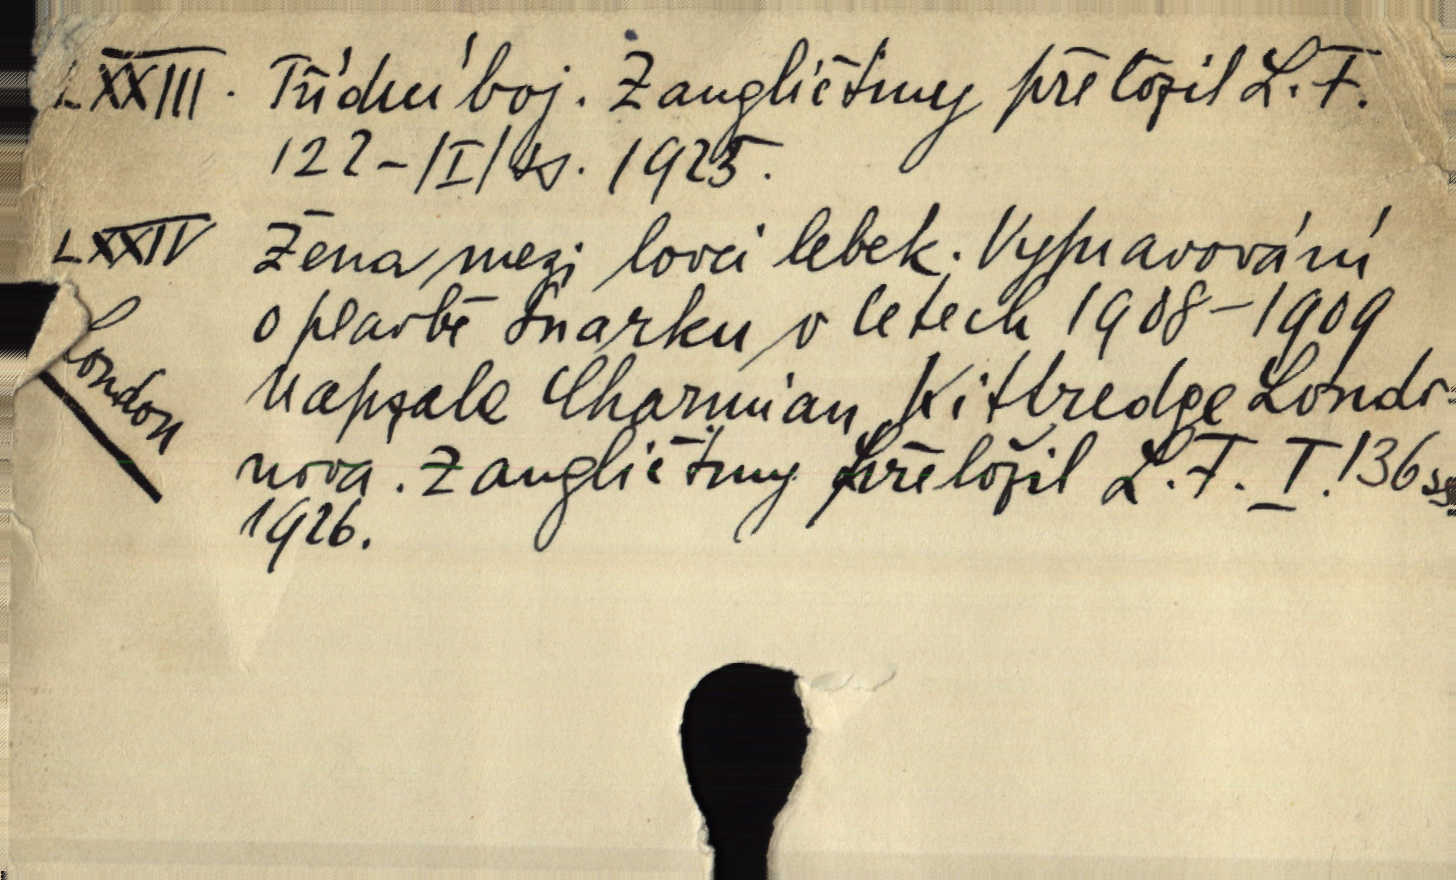 LXXIII. Třídní boj. Z angličtiny přeložil L. F.
122-/I/ ss. 1925.
LXXIV Žena mezi lovci lebek. Vypravování
o plavbě Snarku v letech 1908-1909
napsala Charmian Kittredge Londo-
nova. Z angličtiny přeložil L. F. I. 136 ss
1926.
London